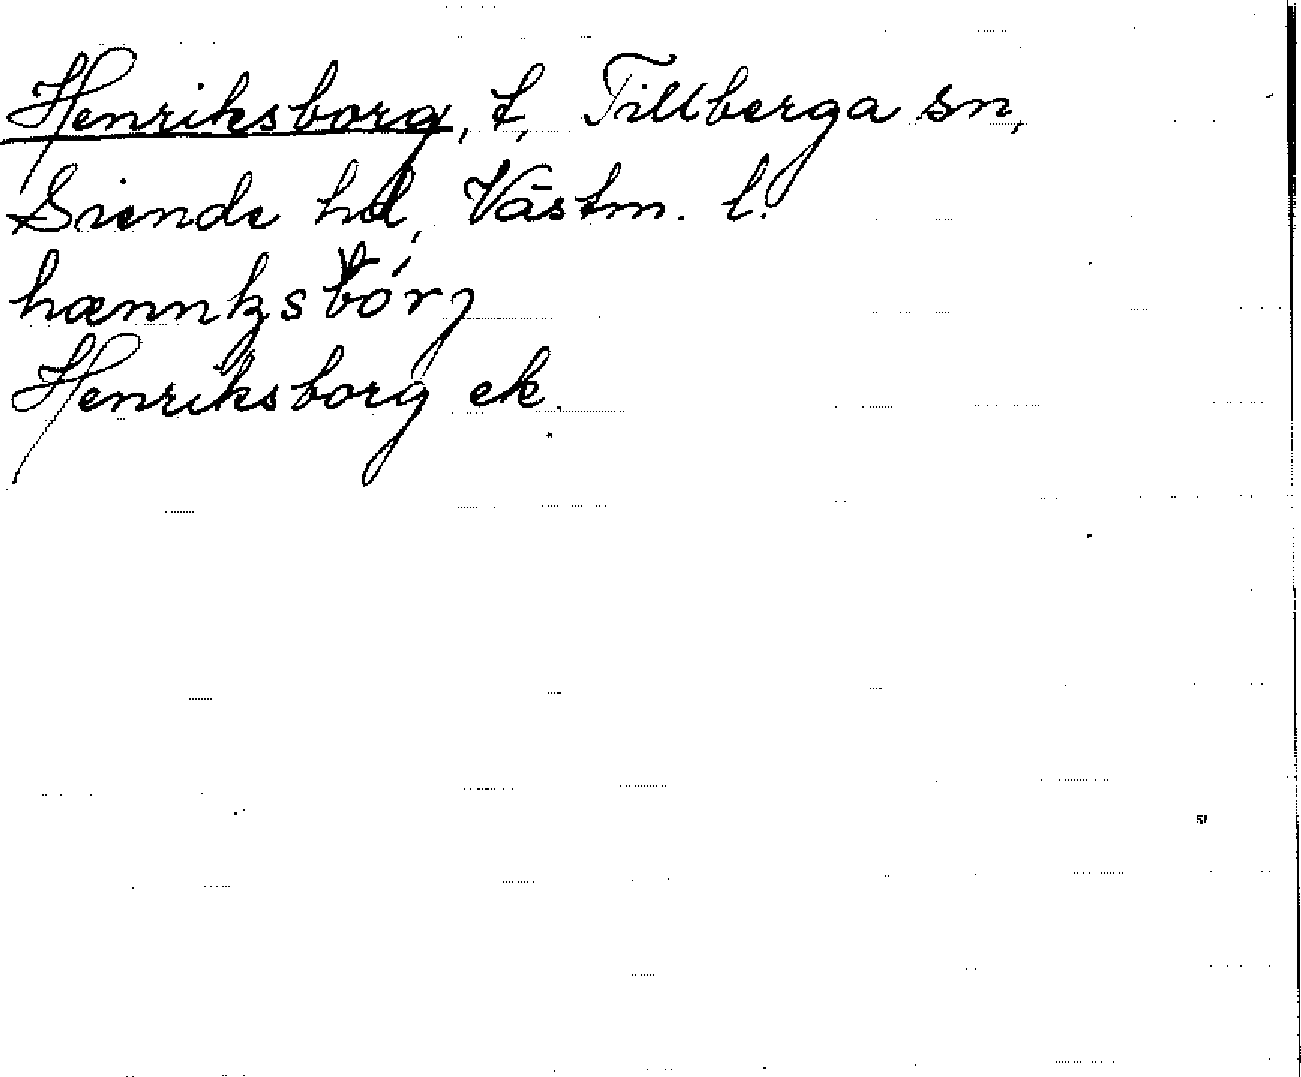 Henriksborg, t, Tillberga sn,
Siende hd, Västm. l.
hænnksbórj
Henriksborg ek.